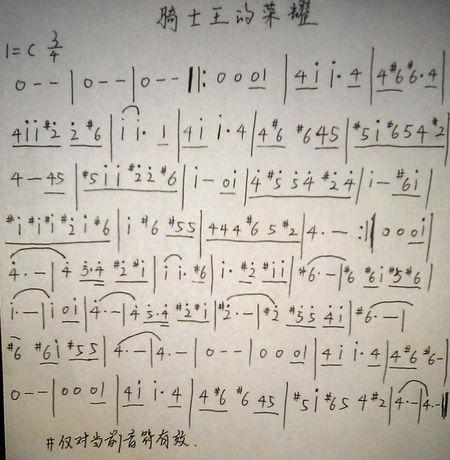 骑士王的荣耀
1=C 3/4
0 - - | 0 - - | 0 - - ‖: 0 0 01 | 4 i i· 4 | 4 #6 #6· 4 |
4 i i #2 2 #6 | i i· 1 | 4 i i· 4 | 4 #6 #6 4 5 | #5 i #6 5 4 #2 |
4 - 45 | #5 i i #2 2 #6 | i - 0i | 4 #5 5 4 #2 4 | i - #6i |
#i #i #i #2 i #6 | i #6 #55 | 4 4 4 #6 5 #2 | 4· - :‖ 0 0 0i |
4· - | 4 5·4 #2 #i | i i· #6 | i· #2 #i i | #6· - | #6 #6 i #5 #6 |
i· - | i 0i | 4· - | 4 5·4 #2 #i | #2· - | #2 #5 5 4 i | #6· - |
#6 #6i #55 | 4· - | 4· - | 0 - - | 0 0 0i | 4 i i· 4 | 4 #6 #6 - |
0 - - | 0 0 01 | 4 i i· 4 | 4 #6 #6 45 | #5 i #6 5 4 #2 | 4· - | 4· - ‖
#仅对当前音符有效.